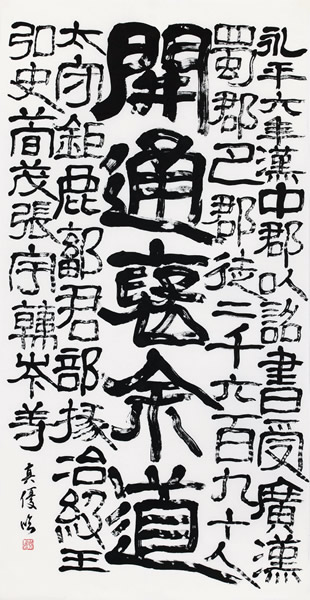 永平六年漢中郡以詔書受廣漢
蜀郡巴郡徒二千六百九十人
開通褒余道
太守鉅鹿鄐君部掾治級王
弘史荀茂張宇韓岑等
真優